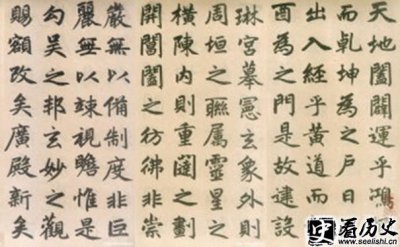 天地闔闢運乎鴻
而乾坤為之戶日
出入經乎黃道而
酉為之門是故建設
琳宮摹憲玄象外則
周垣之聯屬靈星之
橫陳內則重闥之劃
開閶闔之彷彿非崇
嚴無以備制度非巨
麗無以竦視瞻惟是
勾吳之邦玄妙之觀
賜額改矣廣殿新矣
看历史
www.seelishi.cn